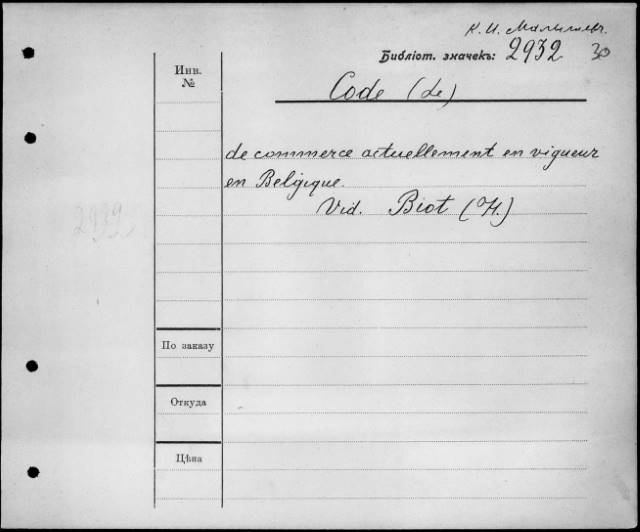 К. И.
Библіот. значекъ: 2932 30
Инв.
№
Code (Le)
de commerce actuellement en vigueur
en Belgique.
Vid. Biot (H.)
2939
По заказу
Откуда
Цѣна